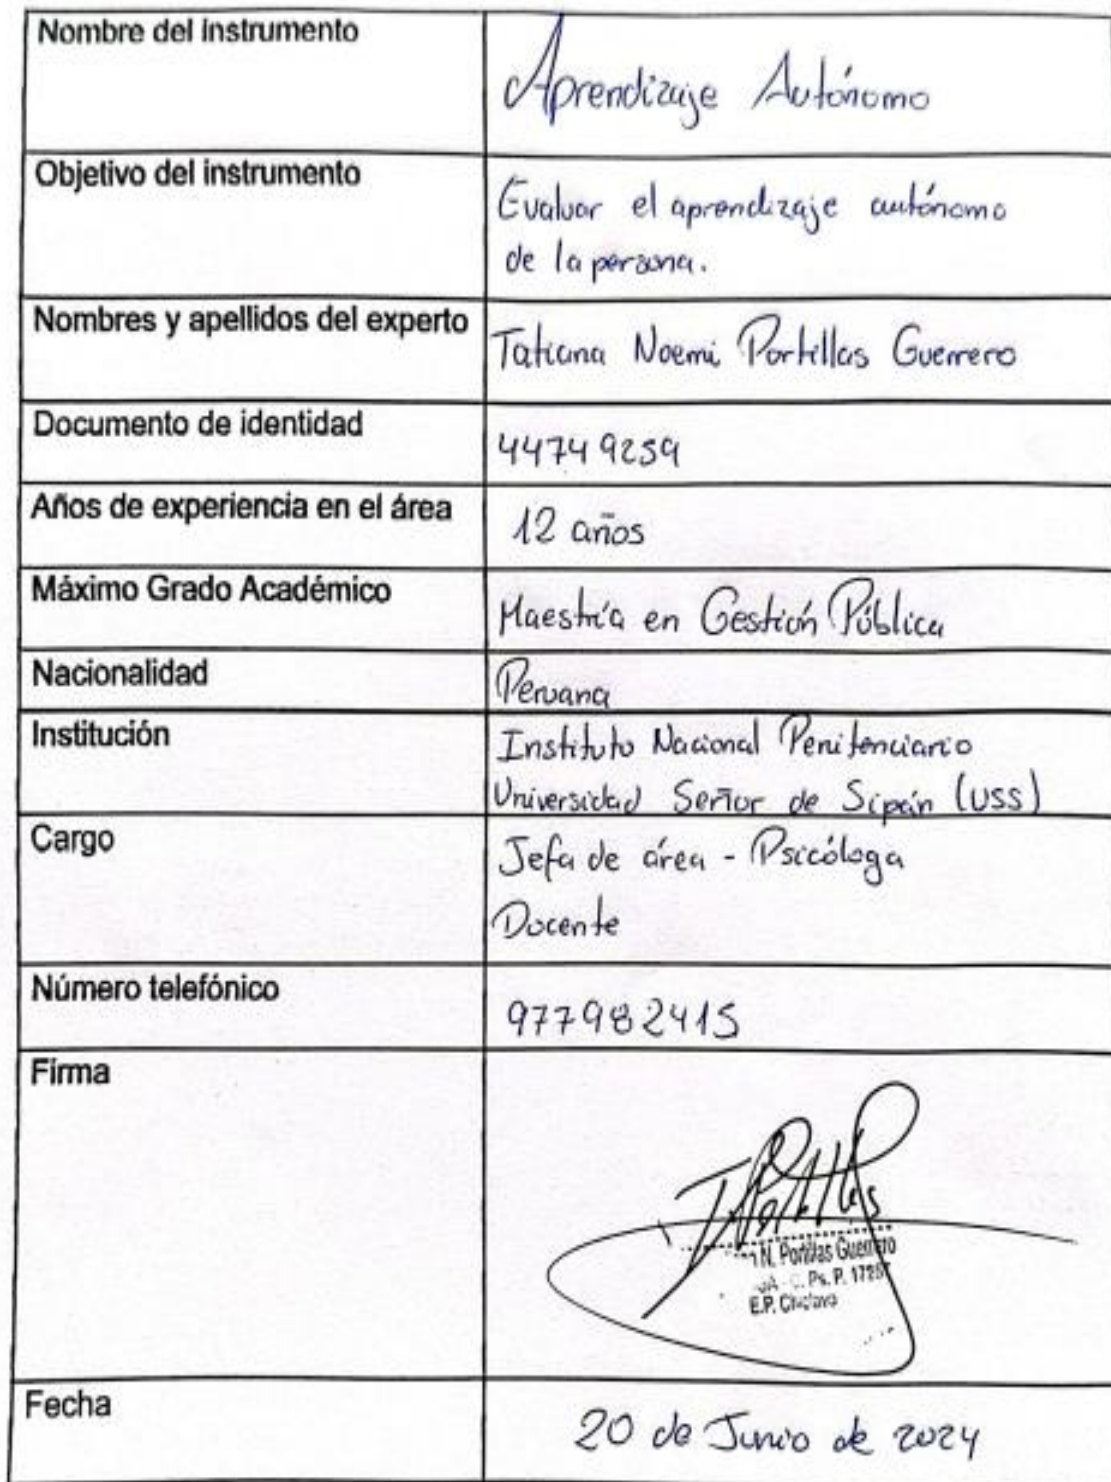 Nombre del instrumento
Aprendizaje Autónomo
Objetivo del instrumento
Evaluar el aprendizaje autónomo
de la persona.
Nombres y apellidos del experto
Tatiana Noemi Portillas Guerrero
Documento de identidad
44749259
Años de experiencia en el área
12 años
Máximo Grado Académico
Maestría en Gestión Pública
Nacionalidad
Peruana
Institución
Instituto Nacional Penitenciario
Universidad Señor de Sipán (USS)
Cargo
Jefa de área - Psicóloga
Docente
Número telefónico
977982415
Firma
N. Portillas Guerrero
Ps. P. 17257
E.P. Chiclayo
Fecha
20 de Junio de 2024